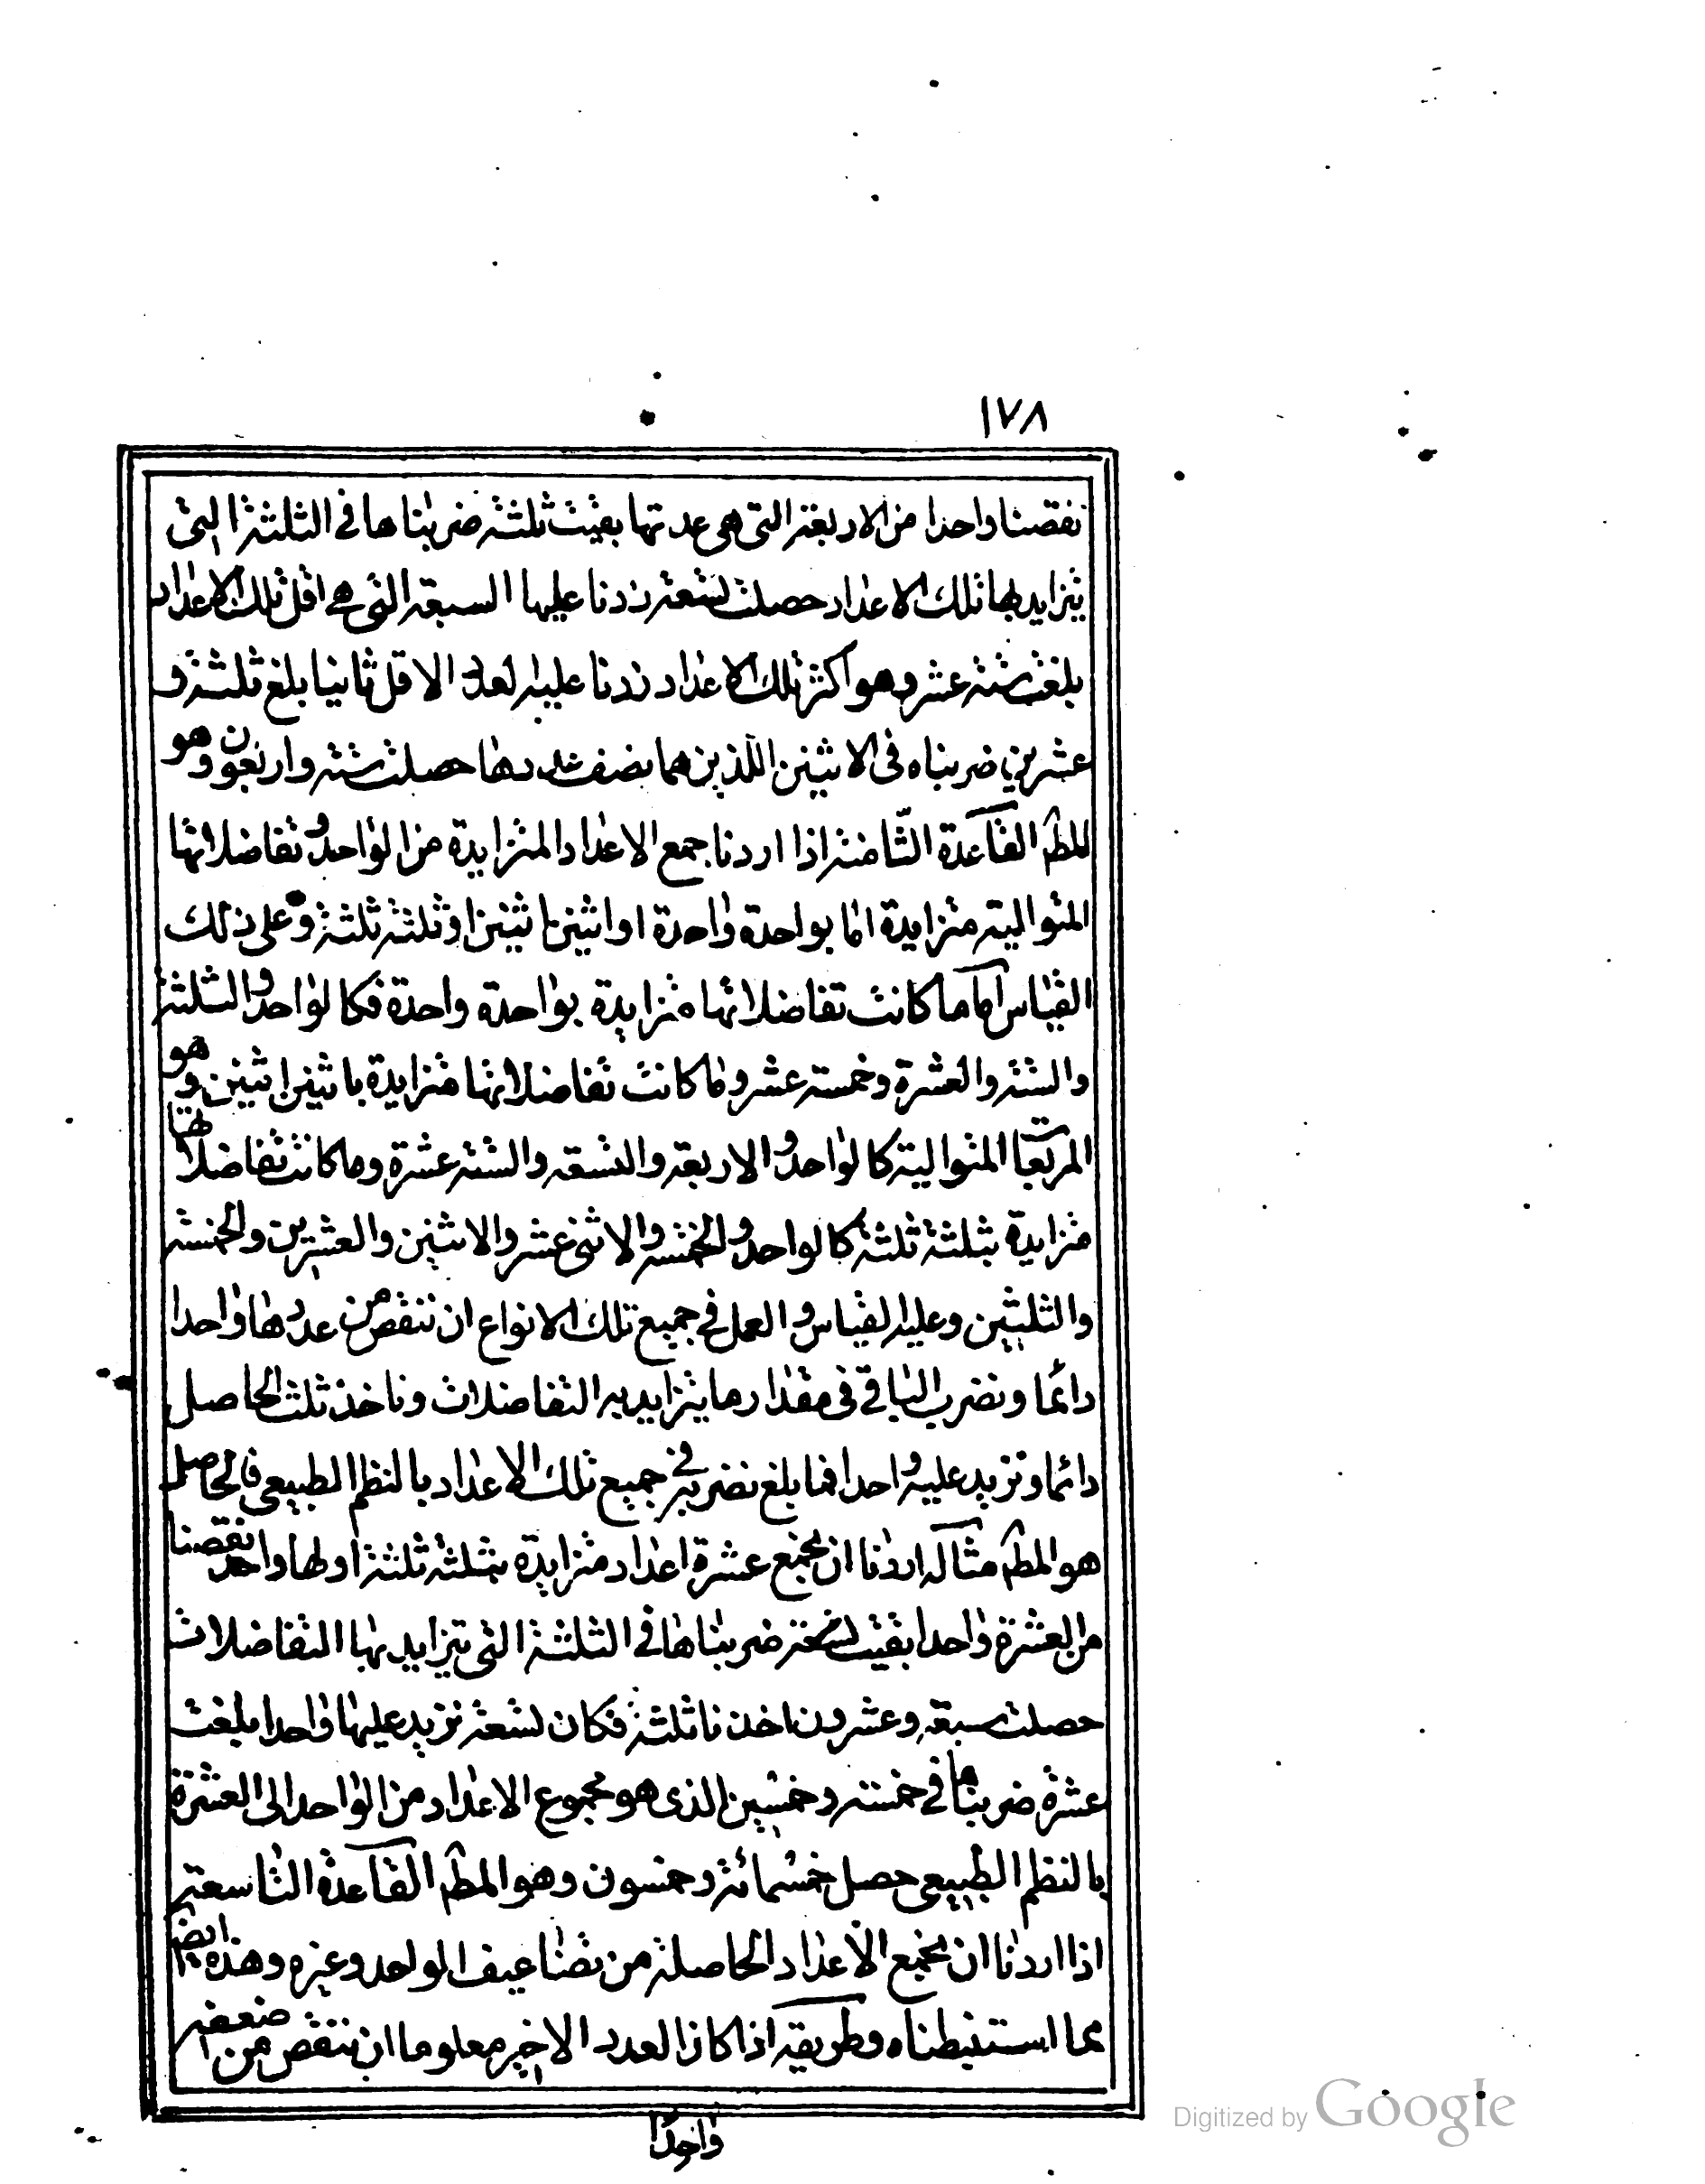 ١٧٨
نقصنا واحدا من الاربعة التى هى عدتها بقيت ثلثة ضربناها في الثلثة التى
يتزايد بها تلك الاعداد حصلت تسعة زدنا عليها السبعة التى هي اقل تلك الاعداد
بلغت ستة عشر وهو اكثر تلك الاعداد زدنا عليه لعدد الاقل ثانيا بلغ ثلثة و
عشرين ضربناه فى الاثنين اللذين هما نصف عددها حصلت ستة واربعون وهو
المط القاعدة الثامنة اذا اردنا جمع الاعداد المتزايدة من الواحد و تفاضلاتها
المتوالية متزايدة اما بواحدة واحدة او اثنين اثنين او ثلثة ثلثة و على ذلك
القياس اما ما كانت تفاضلاتها متزايدة بواحدة واحدة فكالواحد والثلثة
والستة والعشرة وخمسة عشر وما كانت تفاضلاتها متزايدة باثنين اثنين وهو
المربعات المتوالية كالواحد و الاربعة والتسعة والستة عشرة وما كانت تفاضلاتها
متزايدة بثلثة ثلثة كالواحد والخمسة والاثنى عشر والاثنين والعشرين والخمسة
والثلثين وعليه القياس و العمل في جميع تلك الانواع ان ننقص من عددها واحدا
دائما ونضرب الباقي فى مقدار ما يتزايد به التفاضلات وناخذ ثلث الحاصل
دائما ونزيد عليه واحدا فما بلغ نضربه في جميع تلك الاعداد بالنظم الطبيعى فالحاصل
هو المط مثاله اردنا ان نجمع عشرة اعداد متزايدة بثلثة ثلثة اولها واحد نقصنا
من العشرة واحدا بقيت تسعة ضربناها في الثلثة التى يتزايد بها التفاضلات
حصلت سبعة وعشرون اخذنا ثلثة فكان تسعة نزيد عليها واحدا بلغت
عشرة ضربناها في خمسة وخمسين الذى هو مجموع الاعداد من الواحد الى العشرة
بالنظم الطبيعى حصل خمسمائة وخمسون وهو المط القاعدة التاسعة
اذا اردنا ان نجمع الاعداد الحاصلة من تضاعيف الواحد وغيره وهذه ايض
مما استنبطناه وطريقه اذا كان العدد الاخير معلوما ان ننقص من ضعفه
واحدا
Digitized by Google